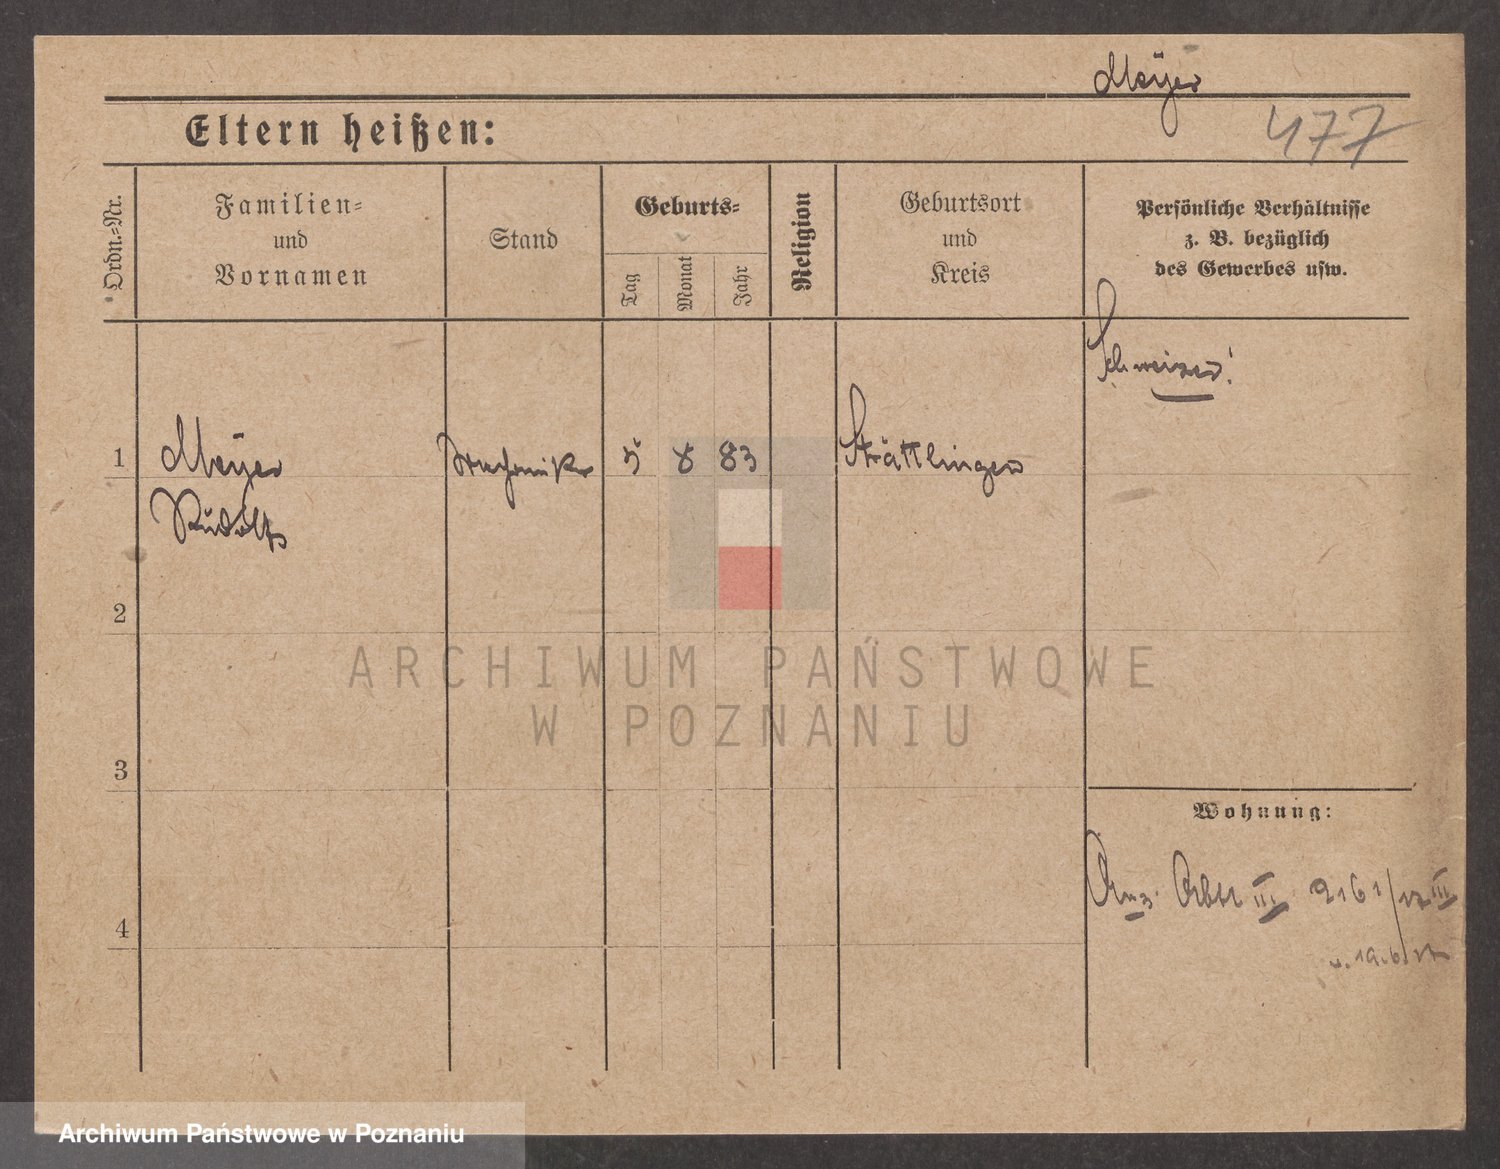 Meÿer
Eltern heißen:
477
Ordn.=Nr.
Familien=
und
Vornamen
Stand
Geburts=
Tag
Monat
Jahr
Religion
Geburtsort
und
Kreis
Persönliche Verhältnisse
z. B. bezüglich
des Gewerbes usw.
Schweizer!
1 Meÿer 5 8 83 Strättlingen
Rudolf
2
ARCHIWUM PAŃSTWOWE
W POZNANIU
3
Wohnung:
Abtl III 2161/17 III
4
Archiwum Państwowe w Poznaniu